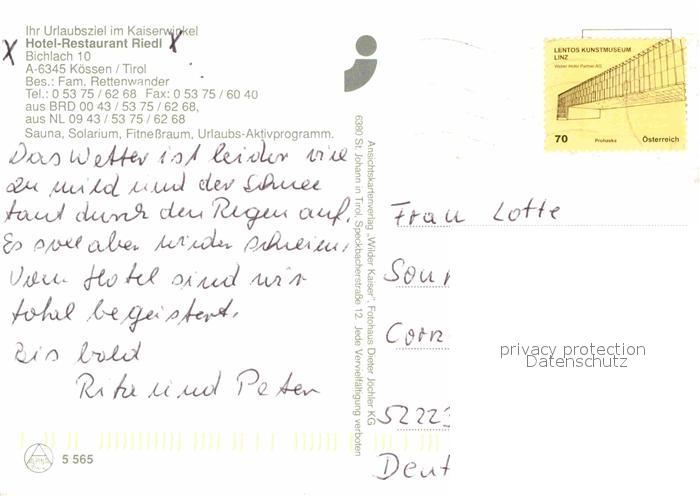 Ihr Urlaubsziel im Kaiserwinkel
x Hotel-Restaurant Riedl x
Bichlach 10
A-6345 Kössen / Tirol
Bes.: Fam. Rettenwander
Tel.: 0 53 75 / 62 68 Fax: 0 53 75 / 60 40
aus BRD 00 43 / 53 75 / 62 68,
aus NL 09 43 / 53 75 / 62 68
Sauna, Solarium, Fitneßraum, Urlaubs-Aktivprogramm.
Das Wetter ist leider viel
zu mild und der Schnee
taut durch den Regen auf.
Es soll aber wieder schneien.
Vom Hotel sind wir
total begeistert.
Bis bald
Rita und Peter
5 565
Ansichtskartenverlag „Wilder Kaiser", Fotohaus Dieter Jöchler KG
6380 St. Johann in Tirol, Speckbacherstraße 12 Jede Vervielfältigung verboten
LENTOS KUNSTMUSEUM
LINZ
Weber Hofer Partner AG
70 Prohaska Österreich
Frau Lotte
Sour
Corn
52223
Deut
privacy protection
Datenschutz